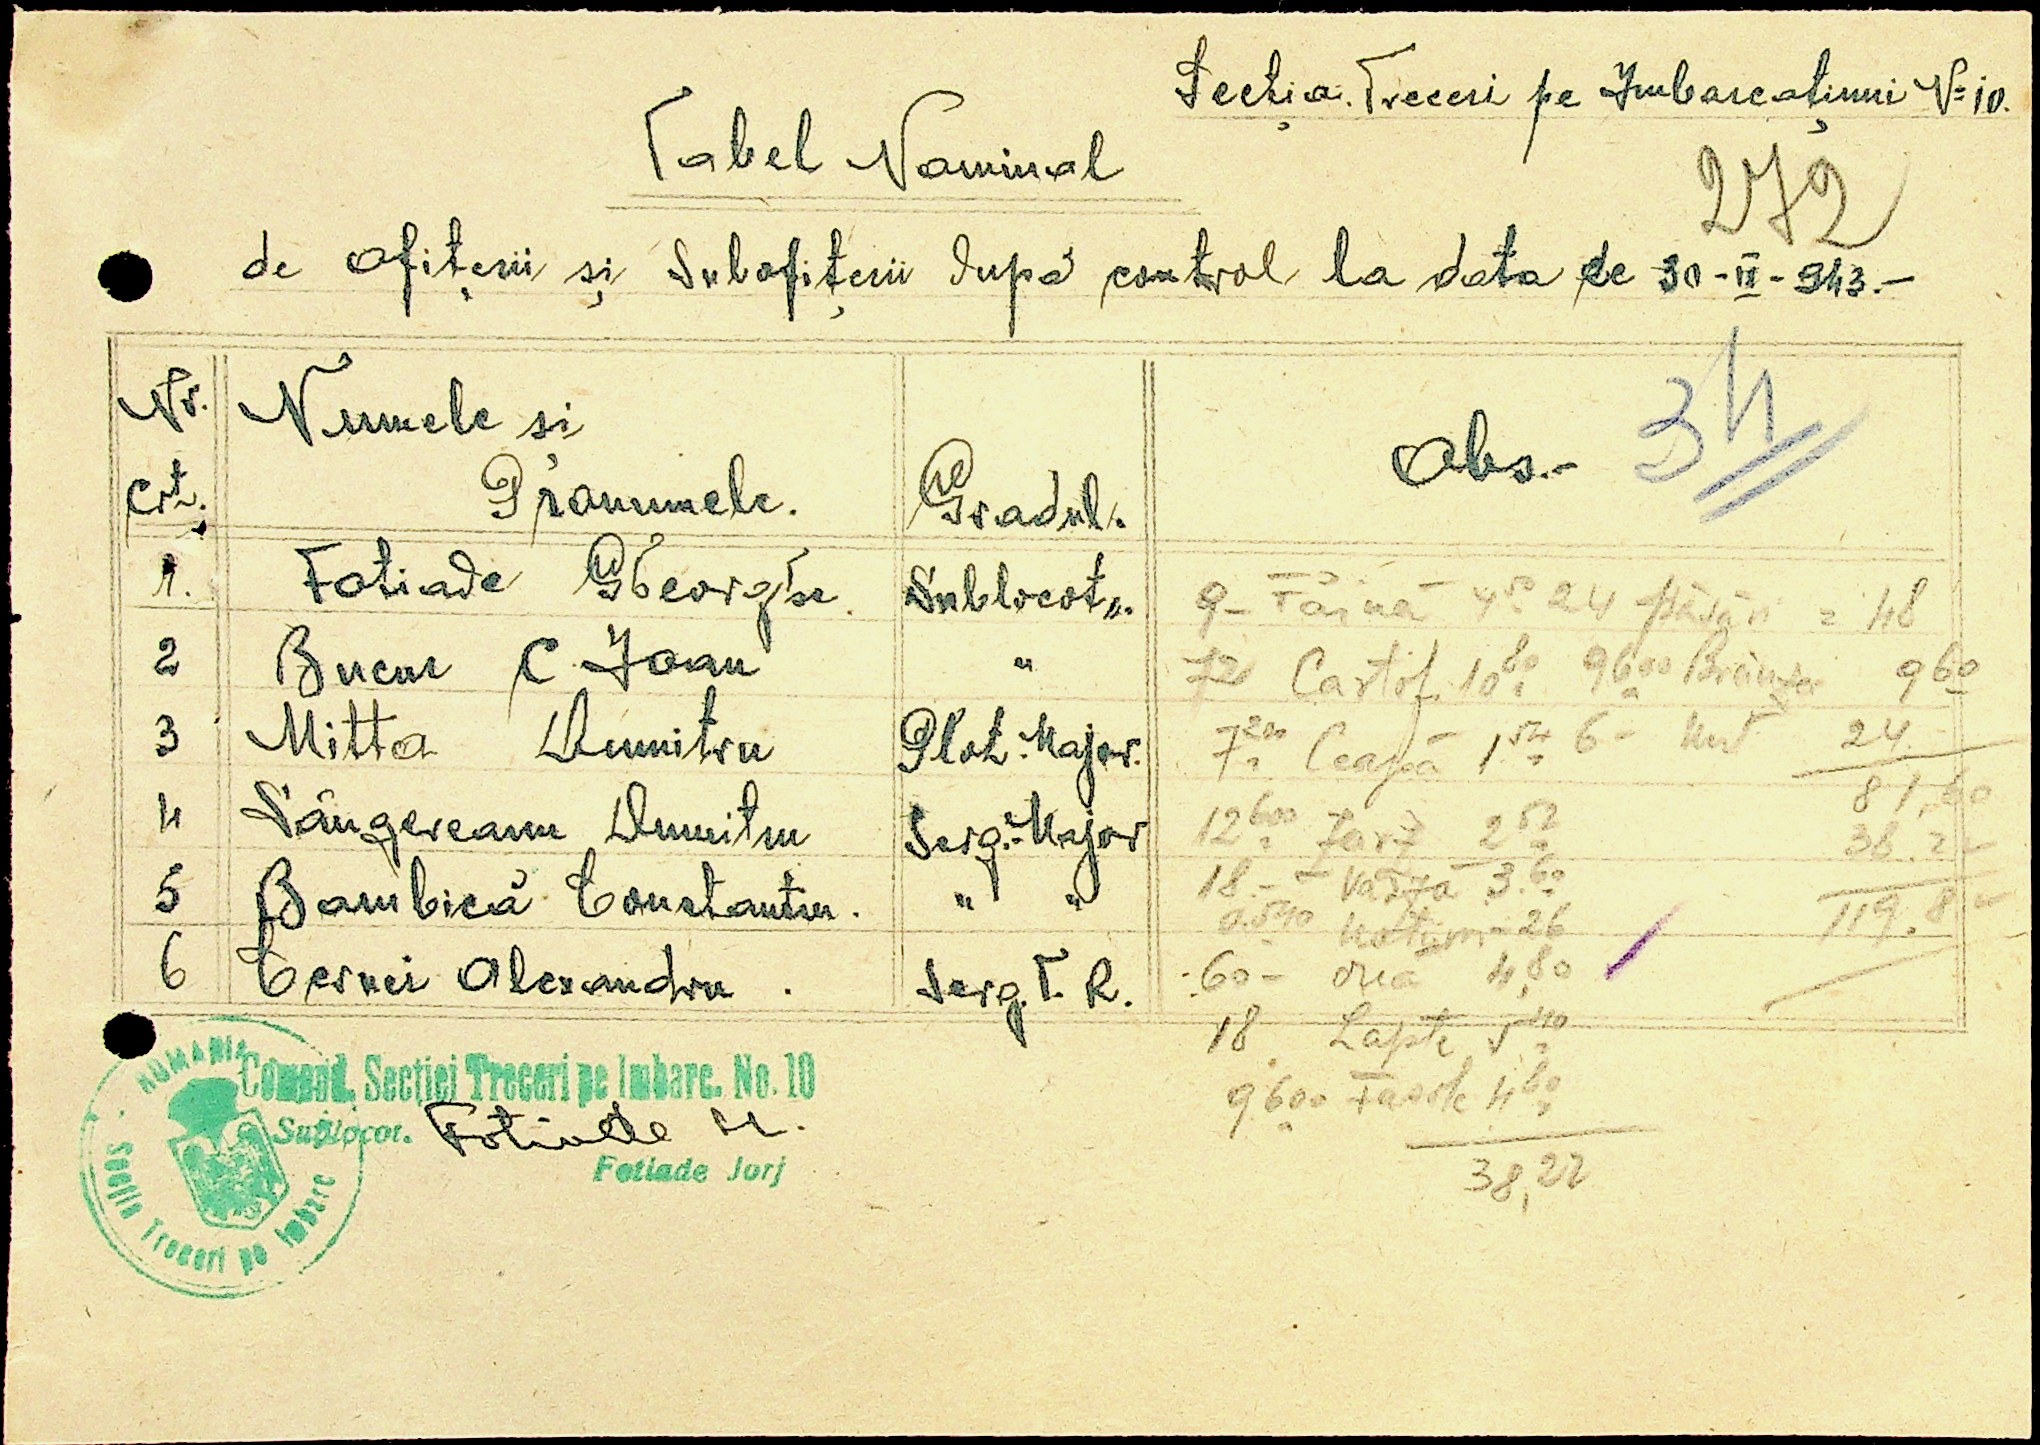 Secția. Treceri pe Imbarcațiuni No 10.
272
Tabel Nominal
de ofițerii și Subofițerii după control la data de 30-II-943.-
Nr. crt. Numele si Pronumele. Gradul. Obs.- 34
1. Fotiade Gheorghe. Sublocot.
2 Bucur C Ioan "
3 Mitta Dumitru Plot. Major.
4 Sângereanu Dumitru Serg.-Major
5 Bambică Constantin. " "
6 Cernei Alexandru. Serg. T. R.
9- Făină 4 50 24 păsări = 48
72 Cartof. 10 80 9600 Brânza 9 60
7 200 Ceapă 1 54 6- Unt 24
81,60
12 600 Zarz 2 52 38.22
18 - Varză 3.60 119.82
0.540 26
60- Ouă 4,80
18. Lapte 5 40
9600 Fasole 4 80
38,22
ROMANIA
Comand. Secției Treceri pe Imbarc. No. 10
Sublocot. Fotiade
Fotiade Jorj
Secția Treceri pe Imbarc